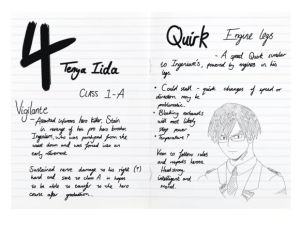 4
Tenya Iida
CLASS 1-A
Vigilante
- Assaulted infamous hero killer, Stain
in revenge of his pro hero brother
Ingenium, who was paralysed from the
waist down and was forced into an
early retirement.
Sustained nerve damage to his right (?)
hand and sent to class A in hopes
to be able to transfer to the hero
course after graduation.
Quirk
Engine legs
- A speed Quirk similar
to Ingenium's, powered by engines in his
legs.
• Could stall - quick changes of speed or
direction may be
problematic.
• Blocking exhausts
will most likely
stop power
• Temperature?
Keen to follow rules
and respects heroes
Headstrong
Intelligent and